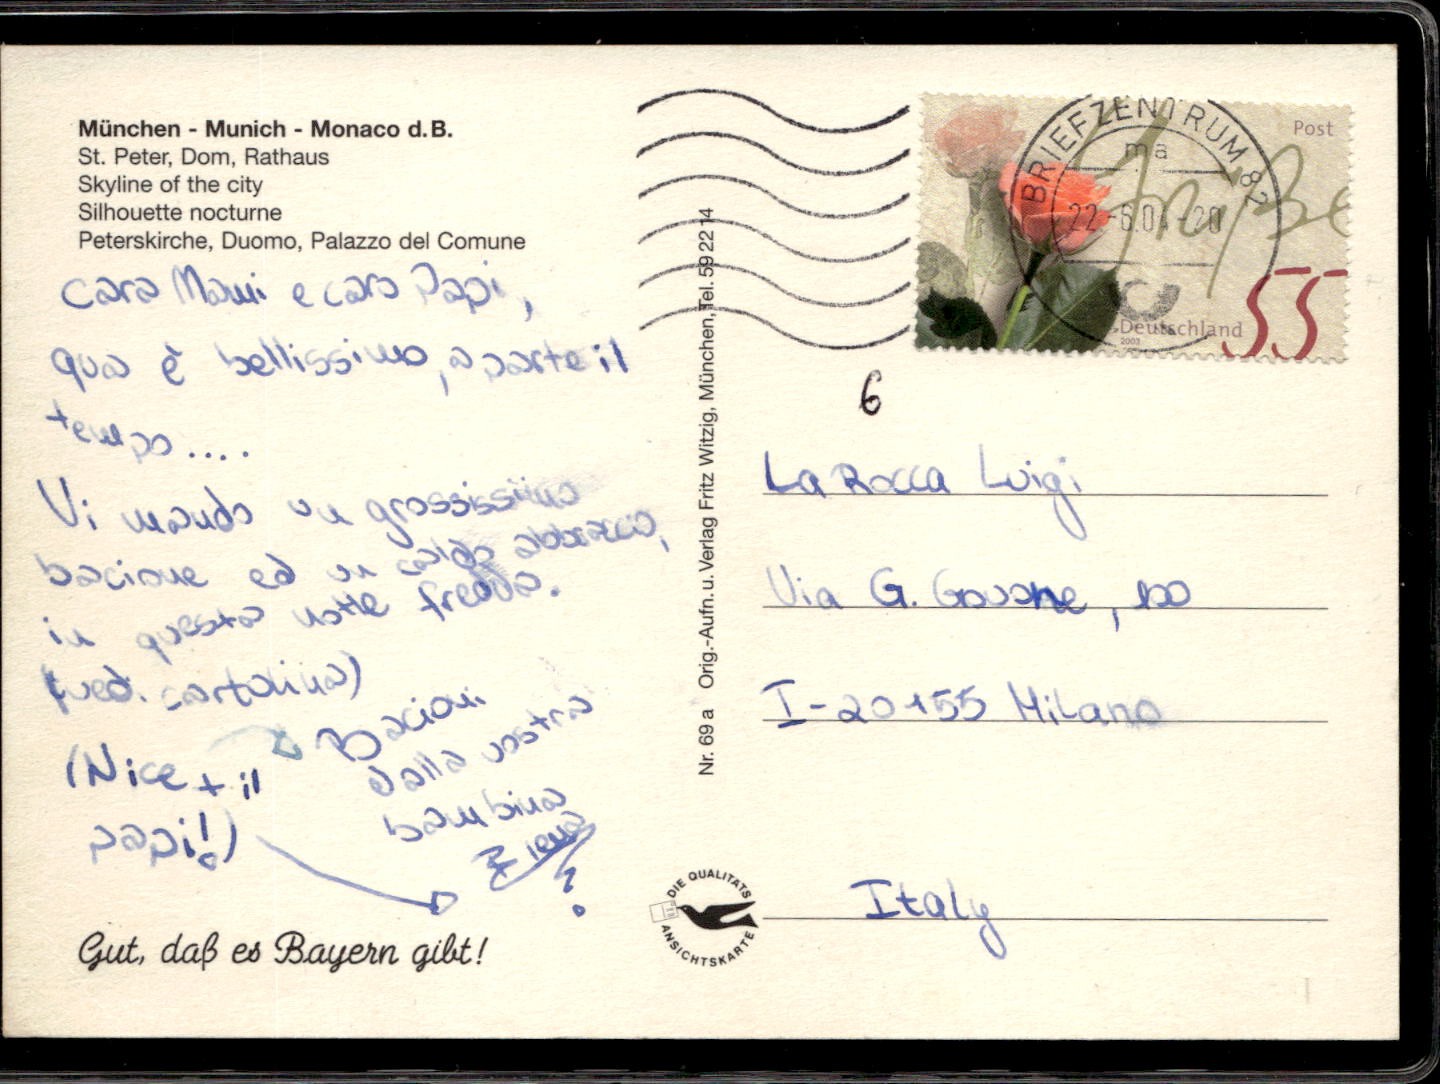 München - Munich - Monaco d.B.
St. Peter, Dom, Rathaus
Skyline of the city
Silhouette nocturne
Peterskirche, Duomo, Palazzo del Comune
cara Mami e caro Papi,
qua è bellissimo, a parte il
tempo....
Vi mando un grossissimo
bacione ed un caldo abbraccio,
in questa notte fredda.
(ved. cartolina)
Bacioni
dalla vostra
bambina
?
(Nice + il
papi!)
Gut, daß es Bayern gibt!
Nr. 69 a Orig.-Aufn. u. Verlag Fritz Witzig, München, Tel. 59 22 14
DIE QUALITÄTS
ANSICHTSKARTE
BRIEFZENTRUM 82
ma
22.-6.04-20
Post
Grüße
Deutschland
2003
55
6
La Rocca Luigi
Via G. Govone, 100
I-20155 Milano
Italy